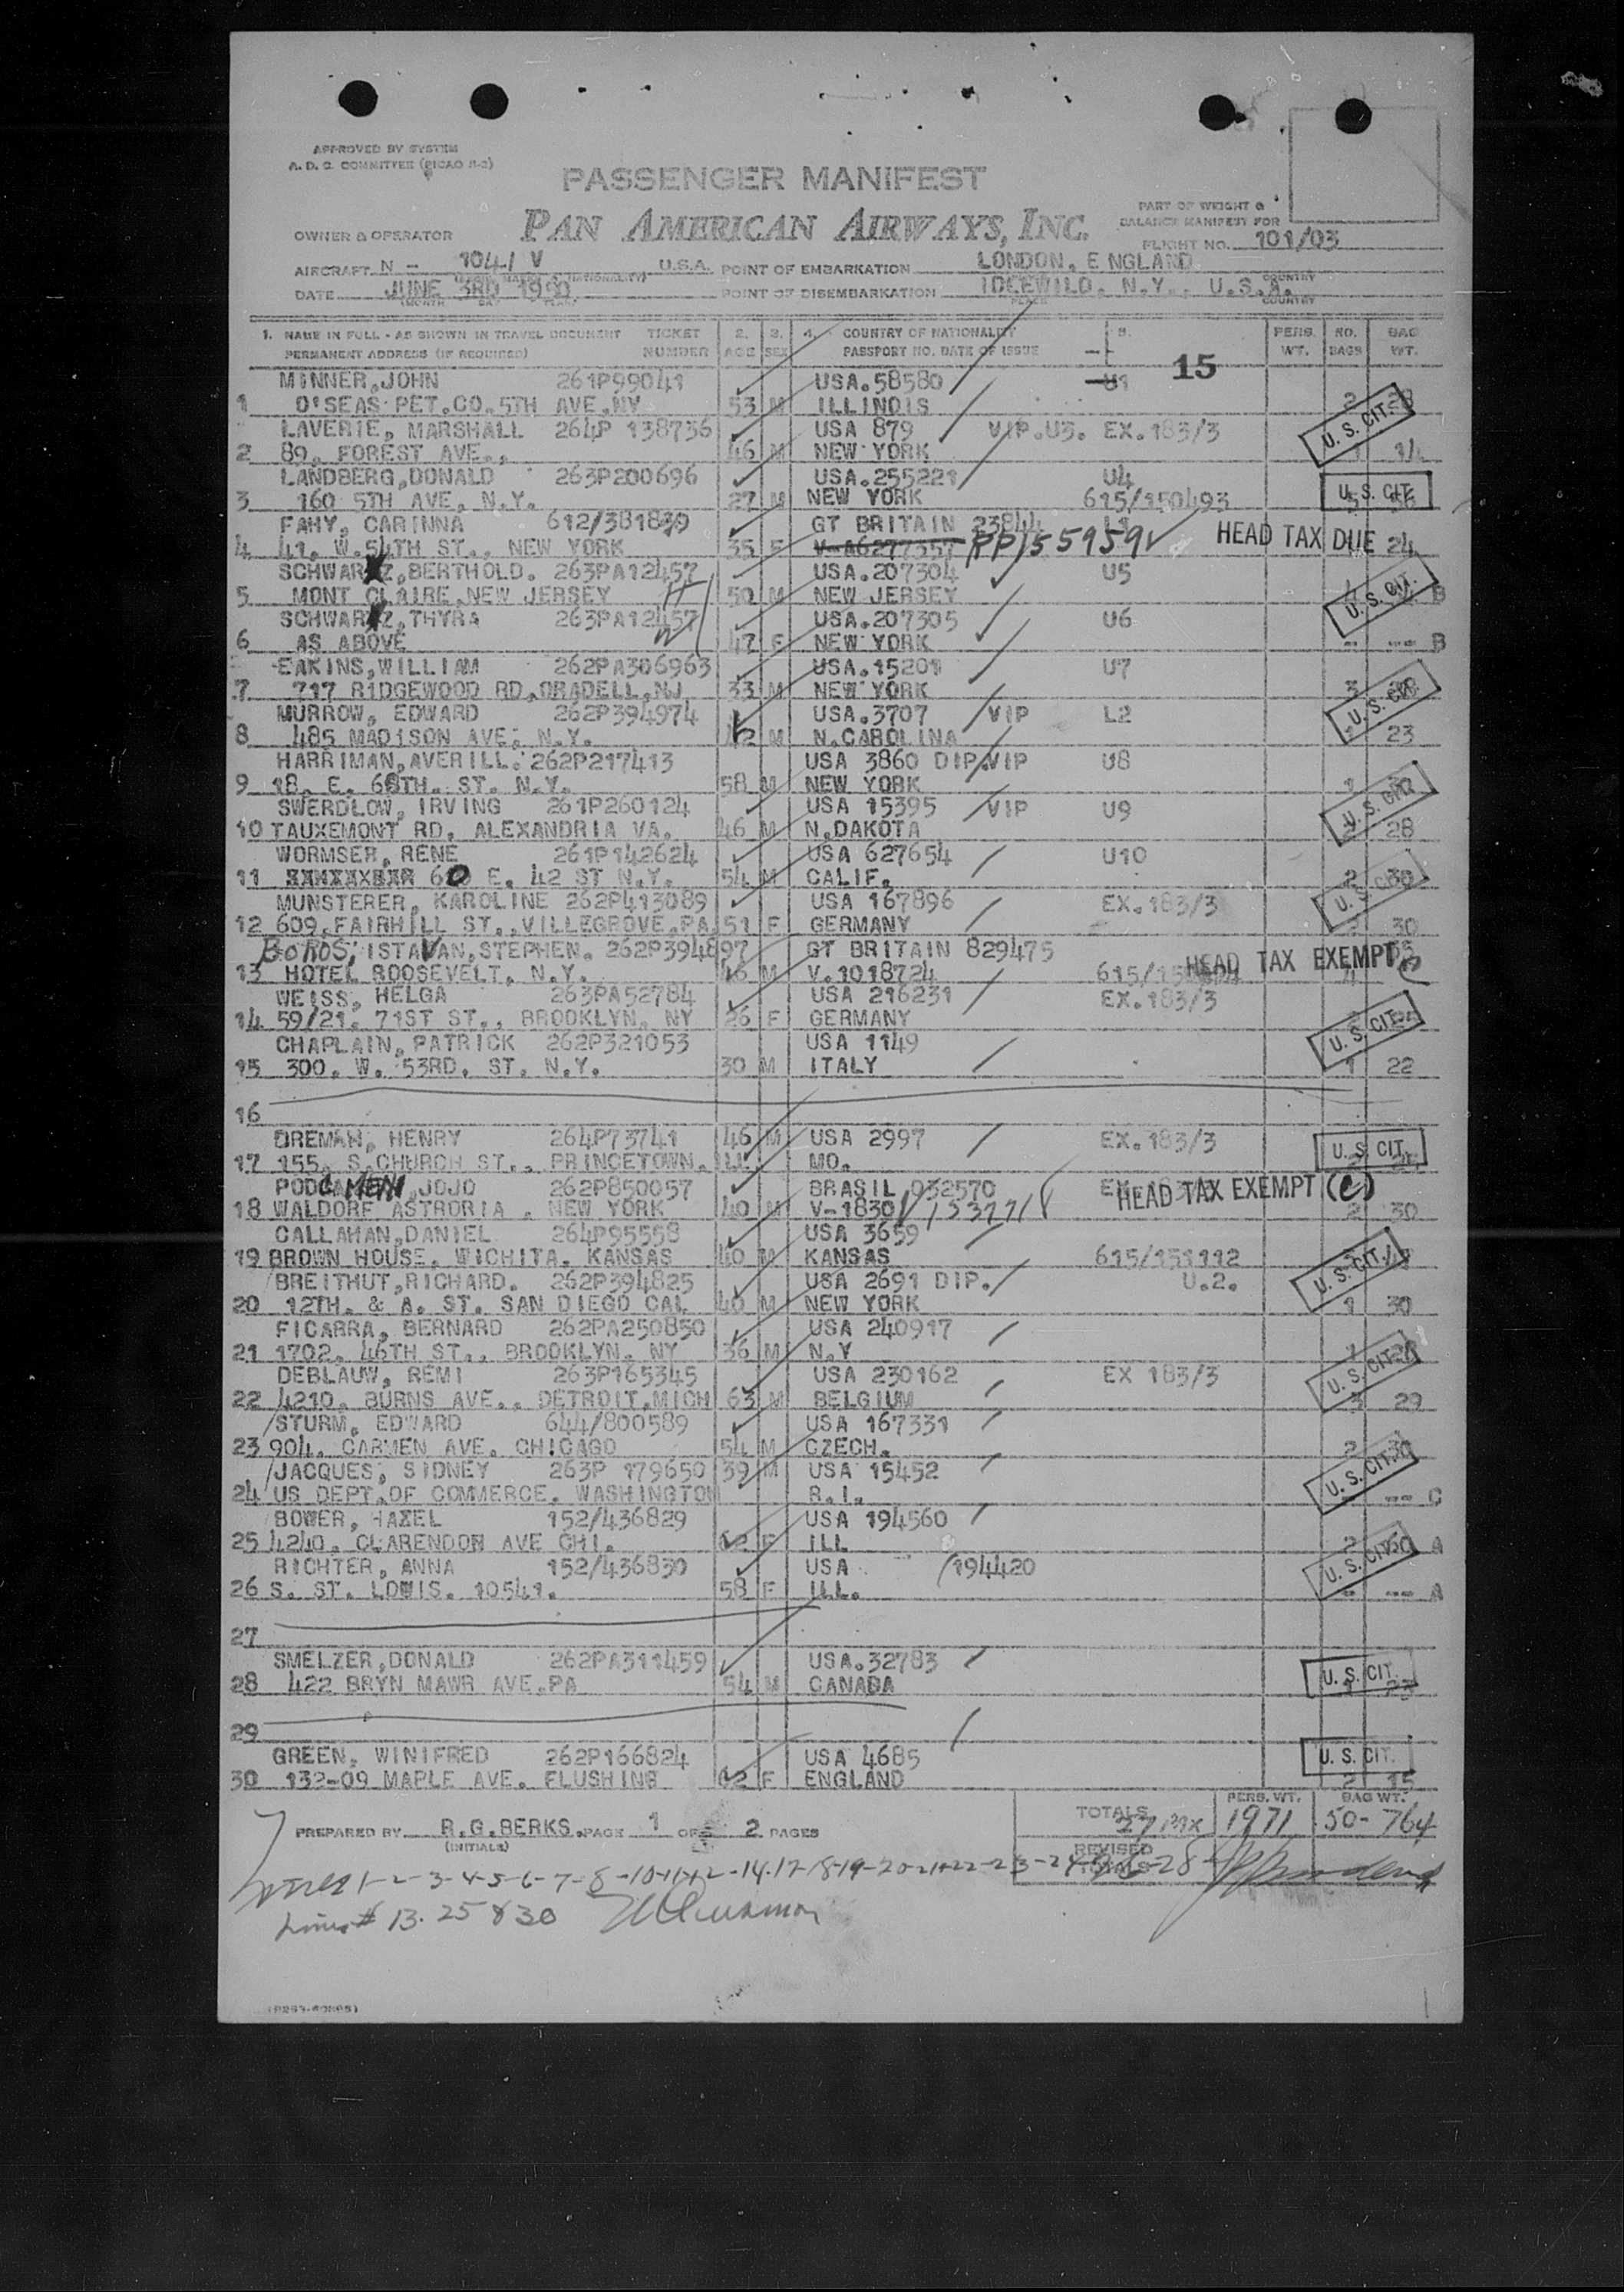 APPROVED BY SYSTEM
A. D. C. COMMITTEE (PICAO A-2)
PASSENGER MANIFEST
PAN AMERICAN AIRWAYS, INC.
PART OF WEIGHT &
BALANCE MANIFEST FOR
OWNER & OPERATOR
FLIGHT NO. 101/03
AIRCRAFT N - 1041 V U.S.A. POINT OF EMBARKATION LONDON, ENGLAND
DATE JUNE 3RD 1950 POINT OF DISEMBARKATION IDLEWILD, N.Y., U.S.A.
1. NAME IN FULL - AS SHOWN IN TRAVEL DOCUMENT TICKET 2. 3. 4. COUNTRY OF NATIONALITY 5. PERS. NO. BAG
PERMANENT ADDRESS (IF REQUIRED) NUMBER AGE SEX PASSPORT NO. DATE OF ISSUE WT. BAGS WT.
MINNER,JOHN 261P99041 USA.58580 U1 15
1 O'SEAS PET.CO.5TH AVE.NY 53 M ILLINOIS 2 28
LAVERIE, MARSHALL 264P 138736 USA 879 VIP.U3. EX.183/3 U. S. CIT.
2 89, FOREST AVE., 46 M NEW YORK 1 14
LANDBERG,DONALD 263P200696 USA.255221 U4
3 160 5TH AVE, N.Y. 27 M NEW YORK 615/150493 U. S. CIT.
FAHY, CARINNA 612/381839 GT BRITAIN 23844 L1 HEAD TAX DUE
4 41, W.54TH ST., NEW YORK 35 F V-A6277357 PP155959 24
SCHWARZ,BERTHOLD. 263PA12457 USA.207304 U5
5 MONT CLAIRE,NEW JERSEY 50 M NEW JERSEY U. S. CIT. B
SCHWARZ,THYRA 263PA12457 USA.207305 U6
6 AS ABOVE 47 F NEW YORK - --- B
EAKINS,WILLIAM 262PA306963 USA.15201 U7
7 717 RIDGEWOOD RD,ORADELL,NJ 33 M NEW YORK 3 U. S. CIT.
MURROW, EDWARD 262P394974 USA.3707 VIP L2
8 485 MADISON AVE, N.Y. 42 M N.CAROLINA 1 23
HARRIMAN,AVERILL. 262P217413 USA 3860 DIP.VIP U8
9 18. E. 68TH. ST. N.Y. 58 M NEW YORK 1 30 U. S. CIT.
SWERDLOW, IRVING 261P260124 USA 15395 VIP U9
10 TAUXEMONT RD, ALEXANDRIA VA. 46 M N.DAKOTA 28
WORMSER, RENE 261P142624 USA 627654 U10
11 XXXXXXXXX 60 E. 42 ST N.Y. 54 M CALIF. 2 30 U. S. CIT.
MUNSTERER, KAROLINE 262P413089 USA 167896 EX.183/3
12 609,FAIRHILL ST.,VILLEGROVE,PA. 51 F GERMANY 30
BOROS, ISTAVAN,STEPHEN. 262P394897 GT BRITAIN 829475 HEAD TAX EXEMPT
13 HOTEL ROOSEVELT, N.Y. 46 M V.1018724 4
WEISS, HELGA 263PA52784 USA 216231 EX.183/3
14 59/21. 71ST ST., BROOKLYN, NY 26 F GERMANY U. S. CIT.
CHAPLAIN, PATRICK 262P321053 USA 1149
15 300. W. 53RD. ST. N.Y. 30 M ITALY 1 22
16
DREMAN, HENRY 264P73741 46 M USA 2997 EX.183/3 U. S. CIT.
17 155, S.CHURCH ST., PRINCETOWN. MO.
PODCAMENI,JOJO 262P850057 BRASIL 032570 HEAD TAX EXEMPT (C)
18 WALDORF ASTRORIA , NEW YORK 40 M V-1830 2 30
CALLAHAN,DANIEL 264P95558 USA 3659
19 BROWN HOUSE, WICHITA, KANSAS 40 M KANSAS 615/151112 U. S. CIT.
BREITHUT,RICHARD. 262P394825 USA 2691 DIP. U.2.
20 12TH. & A. ST. SAN DIEGO CAL 40 M NEW YORK 1 30
FICARRA, BERNARD 262PA250850 USA 240917
21 1702. 46TH ST., BROOKLYN. NY 36 M N.Y 1 28 U. S. CIT.
DEBLAUW, REMI 263P165345 USA 230162 EX 183/3
22 4210. BURNS AVE., DETROIT,MICH 63 M BELGIUM 3 29
STURM, EDWARD 644/800589 USA 167331
23 904. CARMEN AVE. CHICAGO 54 M CZECH. 2 30
JACQUES, SIDNEY 263P 179650 39 M USA 15452 U. S. CIT.
24 US DEPT.OF COMMERCE, WASHINGTON R.I. - --- C
BOWER, HAZEL 152/436829 USA 194560
25 4240, CLARENDON AVE CHI. 62 F ILL 2 60 A
RICHTER, ANNA 152/436830 USA 194420 U. S. CIT.
26 S. ST. LOWIS. 10541. 58 F ILL. - --- A
27
SMELZER,DONALD 262PA311459 USA.32783
28 422 BRYN MAWR AVE.PA 54 M CANADA U. S. CIT. 23
29
GREEN, WINIFRED 262P166824 USA 4685 U. S. CIT.
30 132-09 MAPLE AVE. FLUSHING 62 F ENGLAND 2 15
PERS. WT. BAG WT.
TOTALS 27 1971 50- 764
PREPARED BY R.G.BERKS. PAGE 1 OF 2 PAGES
(INITIALS)
REVISED
TOTALS
Lines 1-2-3-4-5-6-7-8-10-11-12-14-17-18-19-20-21-22-23-24-26-28
Lines # 13. 25 & 30